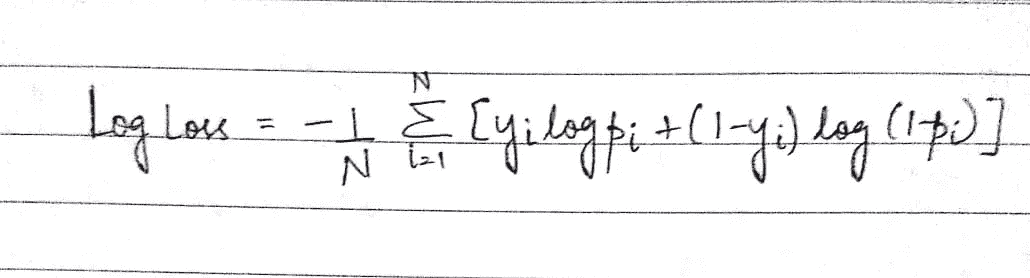 Log Loss = -1/N Σ_{i=1}^{N} [y_i log p_i + (1-y_i) log (1-p_i)]